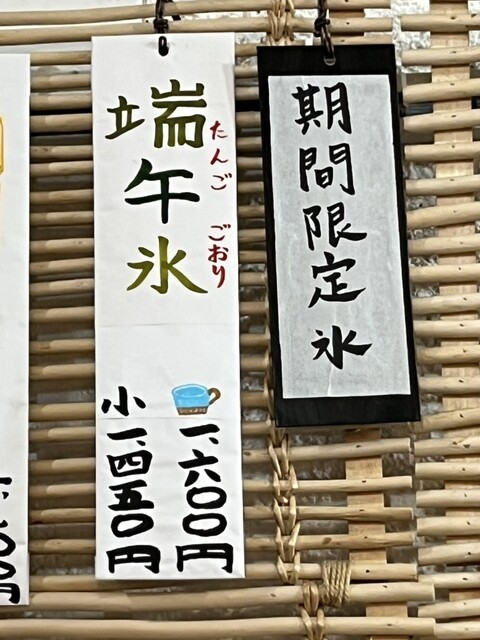 期間限定氷
端午氷
たんご ごおり
一、六〇〇円
小 一、四五〇円